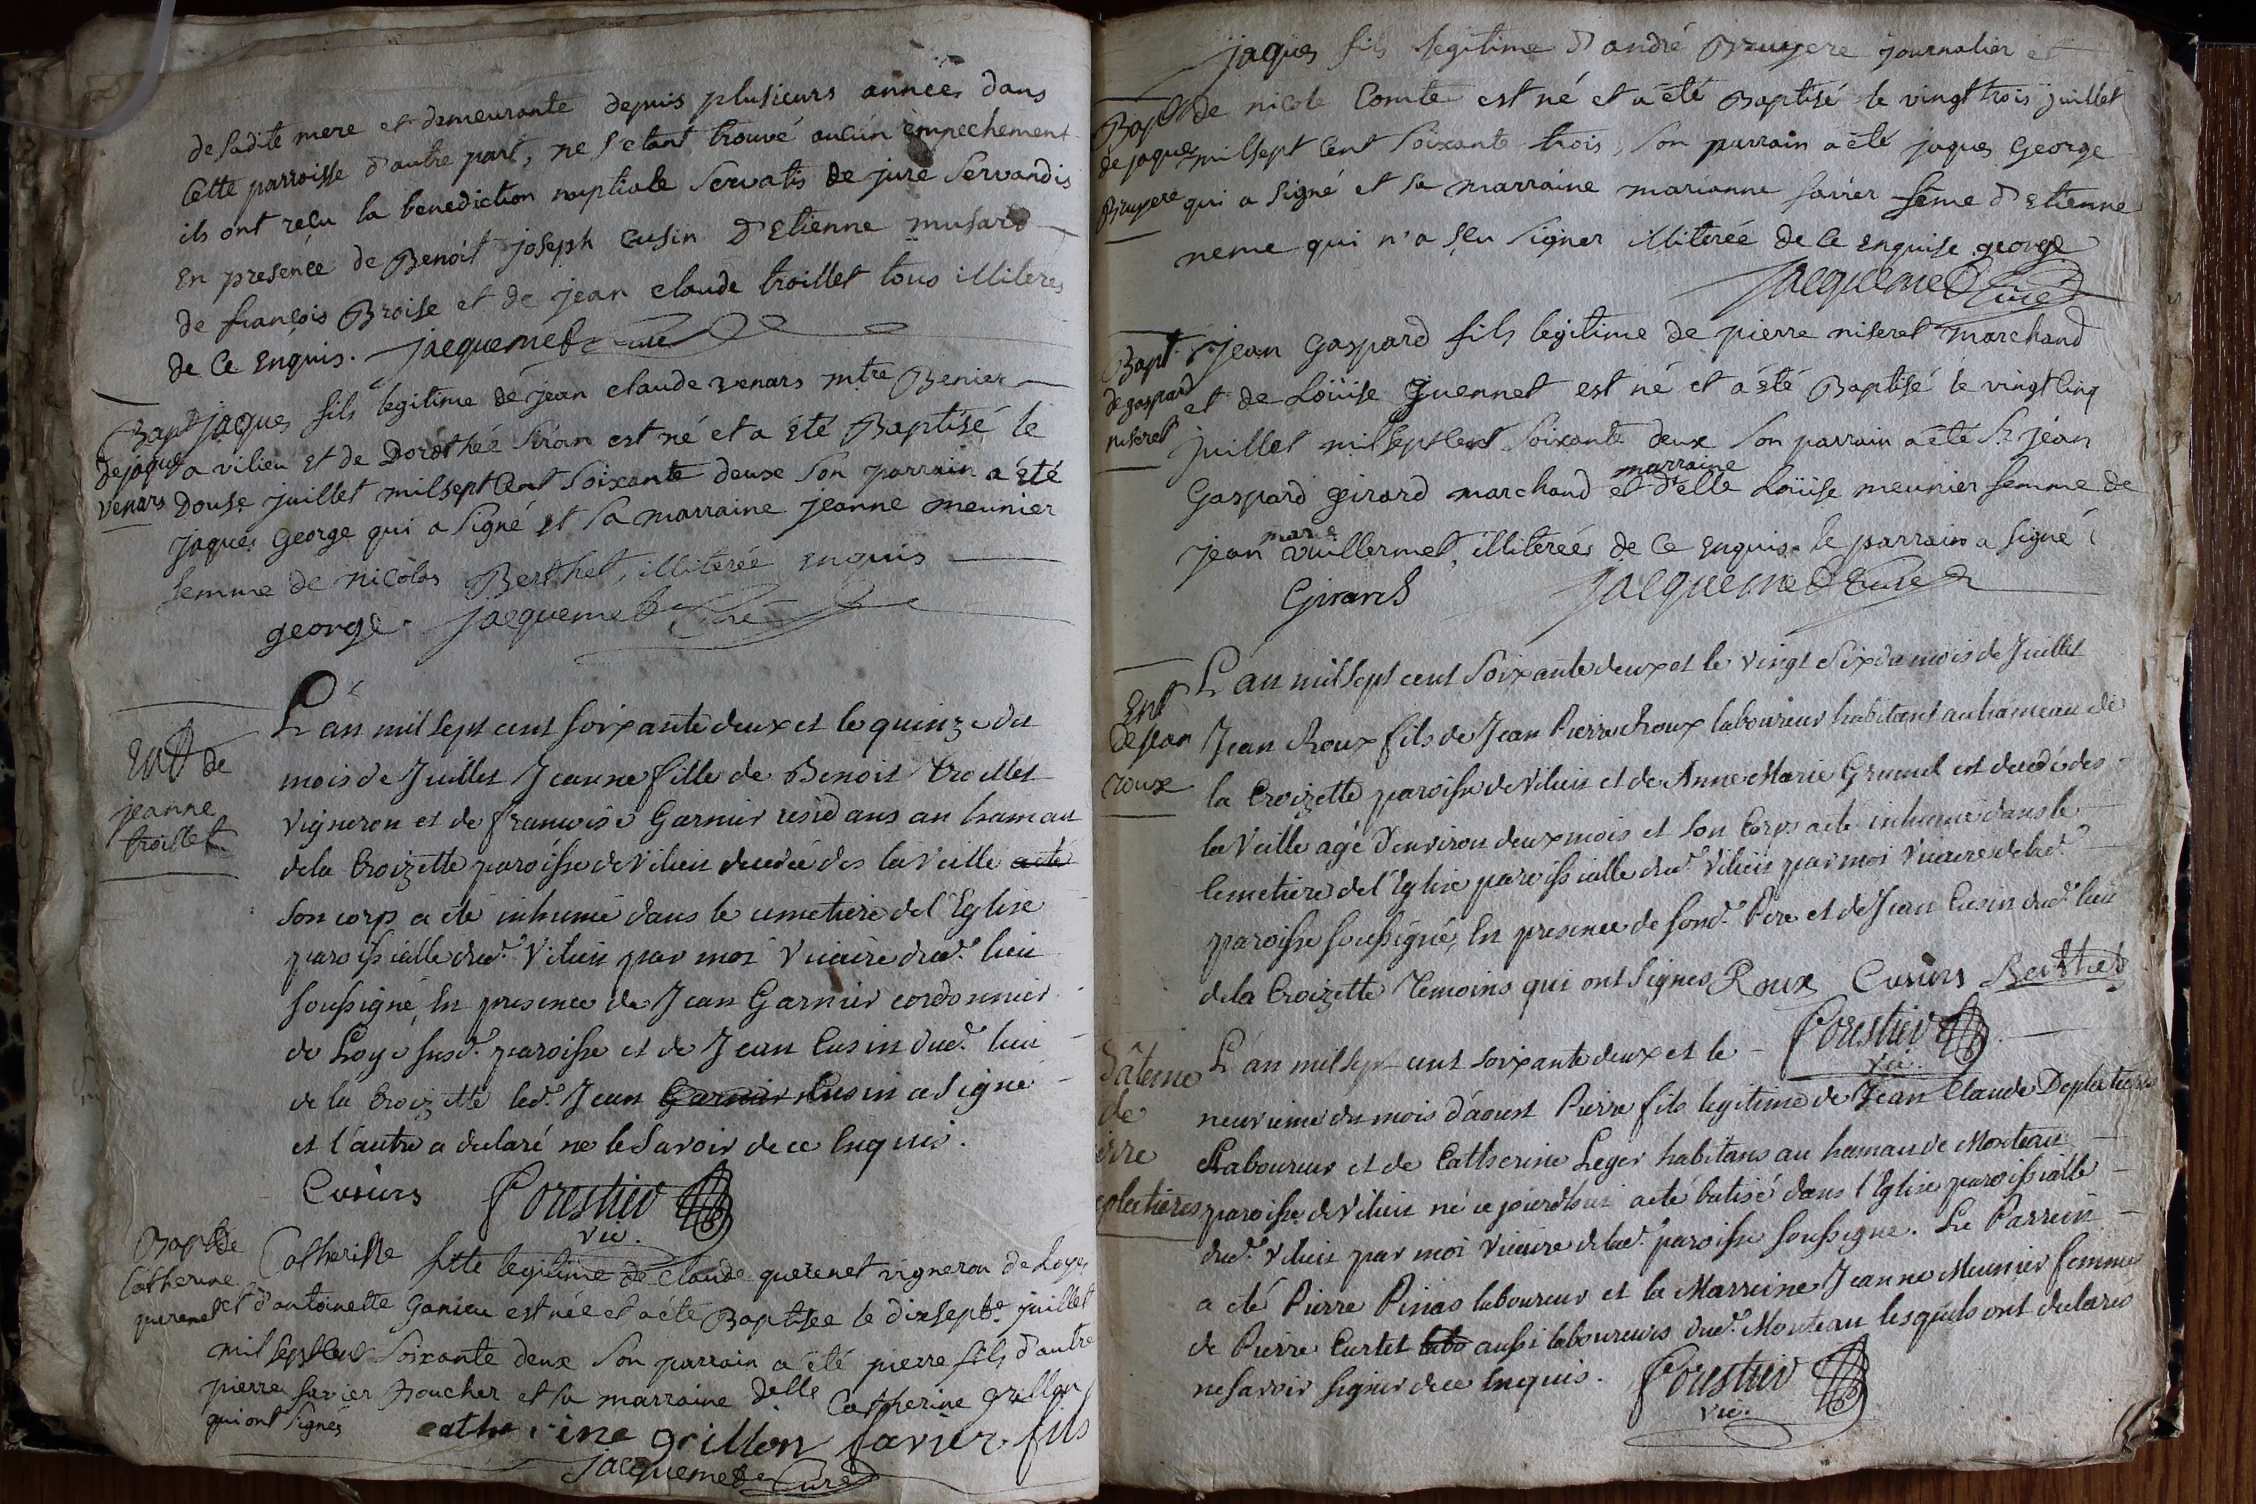 de sadite mere et demeurante depuis plusieurs années dans
Cette parroisse d'autre part, ne s'etant trouvé aucun empechement
ils ont reçu la benediction nuptiale servatis de jure servandis
en presence de Benoit joseph Cusin D'Etienne musard
de françois Broise et de jean claude troillet tous illiterés
de ce enquis. jacquemet curé
Bapt de jaques venars
jaques fils legitime de jean claude venars mtre Benier
a vilieu et de Dorothée siran est né et a été Baptisé le
Douse juillet mil sept Cent soixante deux son parrain a été
jaques George qui a signé et sa marraine jeanne meunier
femme de nicolas Berthet, illiterée enquis
george. jacquemet curé
Ent de
jeanne
troillet
L'an mil sept cent soixante deux et le quinze du
mois de Juillet Jeanne fille de Benoit troillet
vigneron et de francoise Garnier residans au hamau
de la Croizette paroisse de Vilieu decedée des la veille a eté
son corps a eté inhumé dans le cimetiere de l'Eglise
paroissialle dud. Vilieu par moi Vicaire dud. lieu
soussigné, En presence de Jean Garnier cordonnier
de Loye susd. paroisse et de Jean Cusin dud. lieu
de la Croizette led. Jean Garnier Cusin a signé
et l'autre a declaré ne le savoir de ce Enquis.
Cusins Forestier
vic.
Bapt de
Catherine
querenet
Catherine fille legitime de Claude querenet vigneron de Loyes
et d'antoinette Ganieu est née et a été Baptisée le dixsept juillet
mil sept Cent soixante deux son parrain a été pierre fils d'autre
pierre favier Boucher et sa marraine delle Catherine grillon
qui ont signés
catherine grillon favier fils
jacquemet Curé
jaques fils legitime d'andré Bruyere journalier et
Bapt de jaques Bruyere
de nicole Comte est né et a été Baptisé le vingt trois juillet
mil sept Cent soixante trois, son parrain a été jaques George
qui a signé et sa marraine marianne favier feme d'Etienne
neme qui n'a sçu signer illiterée de ce enquise george
jacquemet curé
Bapt
de gaspard
niseret
jean Gaspard fils legitime de pierre niseret Marchand
et de Loüise Guennet est né et a été Baptisé le vingt Cinq
juillet mil sept Cent soixante deux son parrain a été Sr. jean
Gaspard girard marchand et marraine d'elle Loüise meunier femme de
jean marie vuillermet, illiterée de ce enquise le parrain a signé
Girard jacquemet Curé
Ent
de jean
roux
L'an mil sept cent soixante deux et le vingt six du mois de Juillet
Jean Roux fils de Jean Pierre Roux laboureur habitant au hameau de
la Croizette paroisse de Vilieu et de Anne Marie Grumel est decedé des
la Veille agé d'environ deux mois et son Corps a eté inhumé dans le
Cemetiere de l'Eglise paroissialle dud. Vilieu par moi Vicaire de lad.
paroisse soussigné, En presence de sond. Pere et de Jean Cusin dud. lieu
de la Croizette Temoins qui ont signes Roux Cusins Berthet
Forestier
vic.
bâteme
de
ierre
eplatieres
L'an mil sept cent soixante deux et le
neuvieme du mois d'aoust Pierre fils legitime de Jean Claude Deplatieres
Laboureur et de Catherine Leger habitans au hamau de Monteau
paroisse de Vilieu né ce jourd'hui a eté batisé dans l'Eglise paroissialle
dud. Vilieu par moi Vicaire de lad. paroisse soussigné. Le Parrein
a eté Pierre Pinas laboureur et la Marreine Jeanne Meunier femme
de Pierre Curtet labo aussi laboureurs dud. Monteau lesquels ont declarés
ne savoir signer de ce Enquis. Forestier
vic.